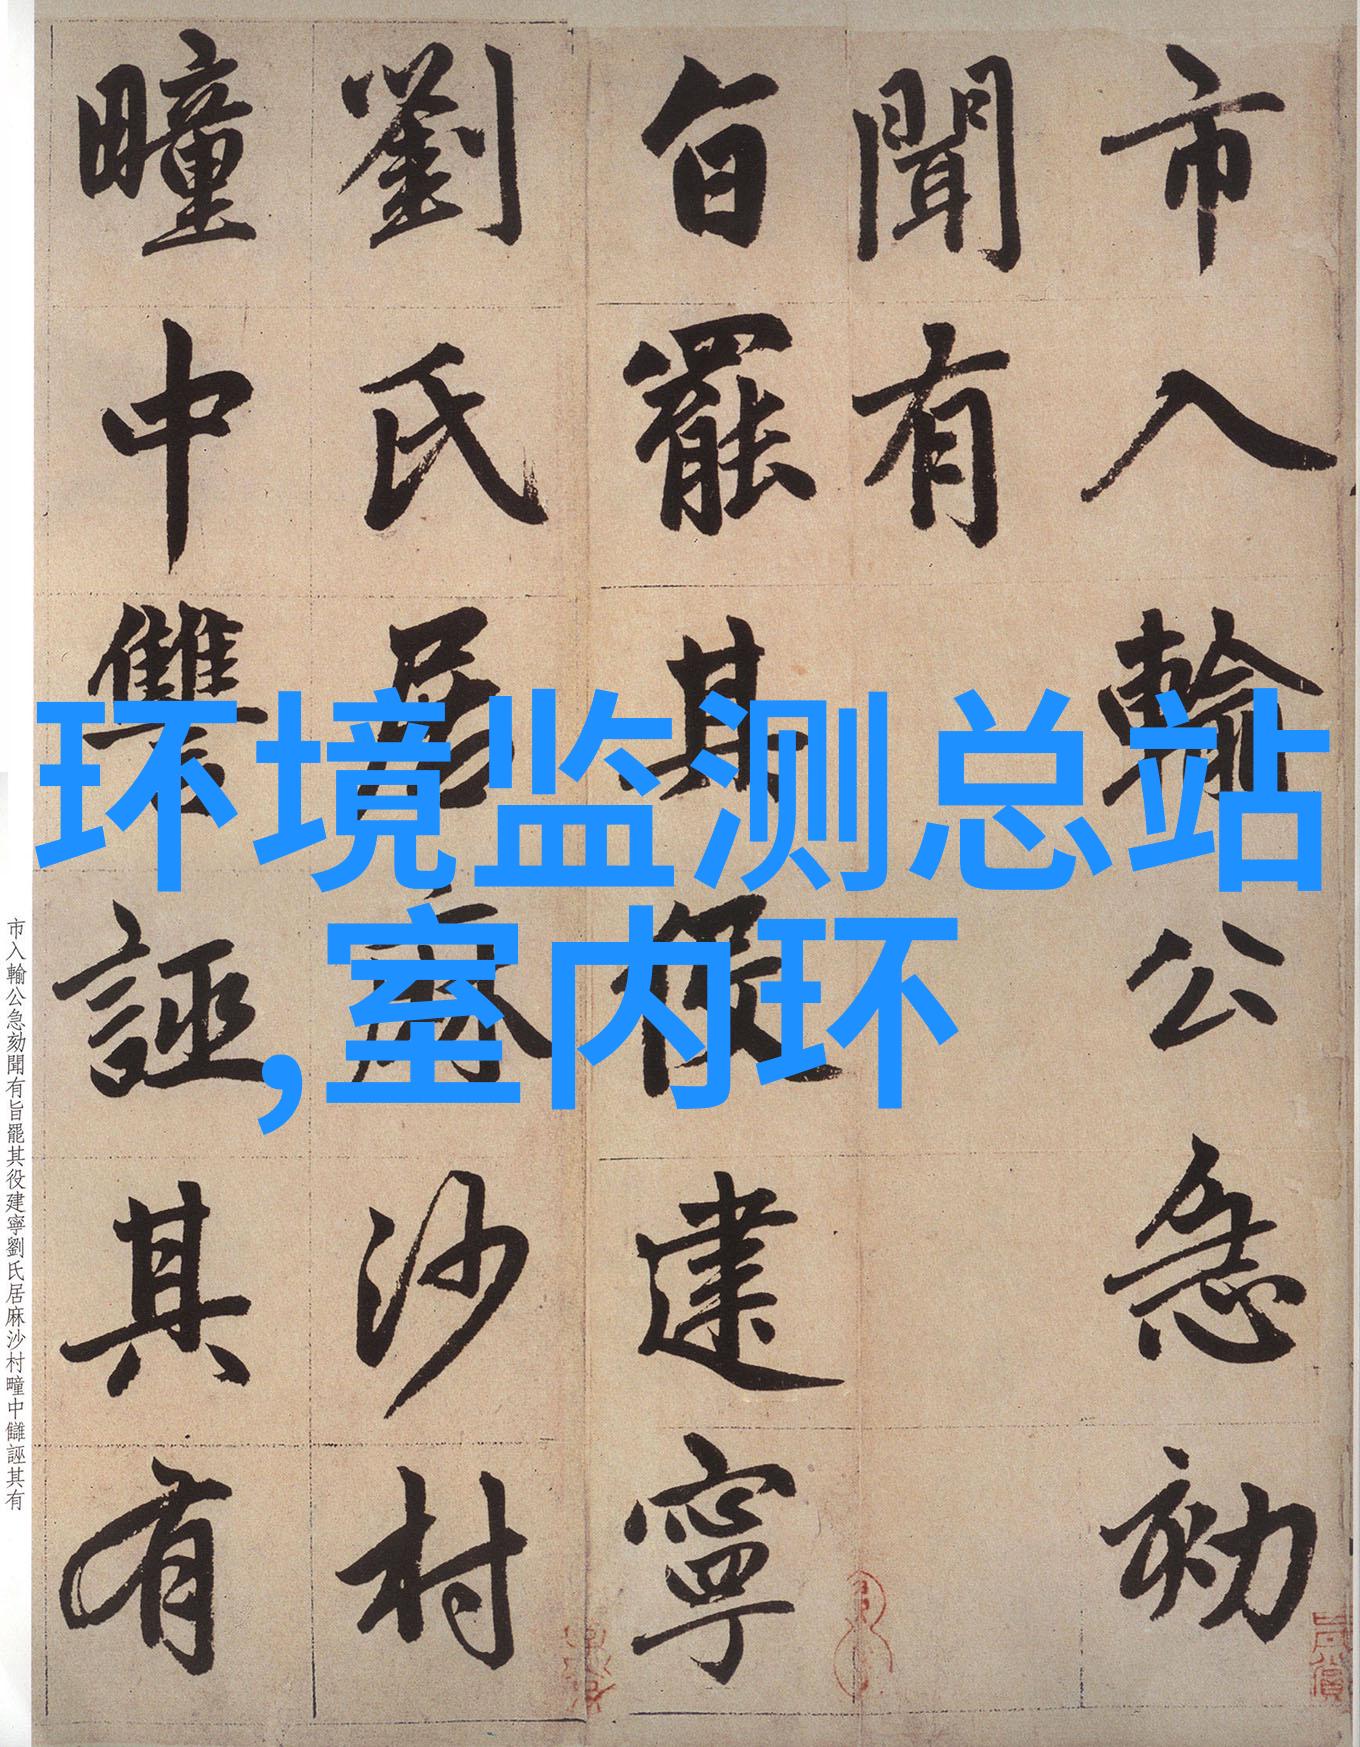 市入輸公急劾
聞有
旨罷其役建寧
劉氏居麻沙村
疃中讐誣其有
环境监测总站
,室内环
市入輸公急劾聞有旨罷其役建寧劉氏居麻沙村疃中讎誣其有